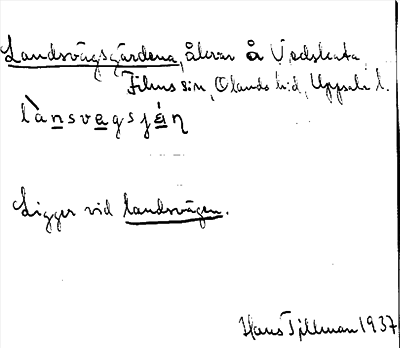 Landsvägsgärdena, åkrar å Vedskata
Films sn, Olands hd, Uppsala l.
lànsvagsján
Ligger vid landsvägen.
Hans Tillman 1937